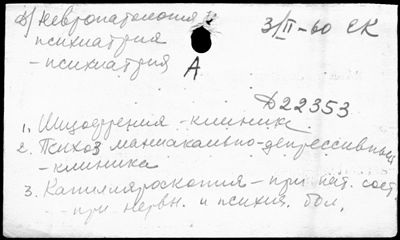 д) Невропатология и
психиатрия
- психиатрия
3/II-60 СК
А
Д22353
1. Шизофрения - клиника
2. Психоз маниакально-депрессивный
- клиника
3. Капилляроскопия - при пат. сост.
- при нервн. и психич. бол.